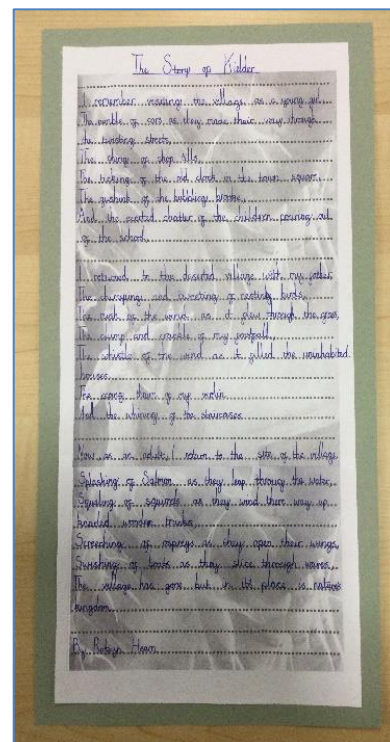 The Story of Kielder
I remember visiting the village as a young girl.
The rumble of cars as they made their way through
the twisting streets,
The ching of shop tills,
The ticking of the old clock in the town square,
The of the
And the excited chatter of the children pouring out
of the school.
I returned to the deserted village with my father,
The chirruping and tweeting of nesting birds,
The of the wind as it blew through the grass,
The crump and crackle of my football,
The whistle of the wind as it filled the uninhabited
houses,
The of my
And the whining of the staircases.
Now as an adult, I return to the site of the village
Splashing of Salmon as they leap through the water,
of squirrels as they wind there way up
wooden trunks,
Screeching of ospreys as they open their wings,
Swishing of boats as they slice through waves,
The village has gone but in it's place is natures
kingdom.
By Robyn